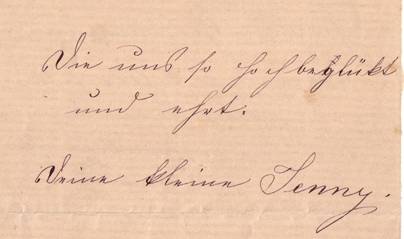 Die uns so hochbeglükt
und ehrt.
Deine kleine Jenny.